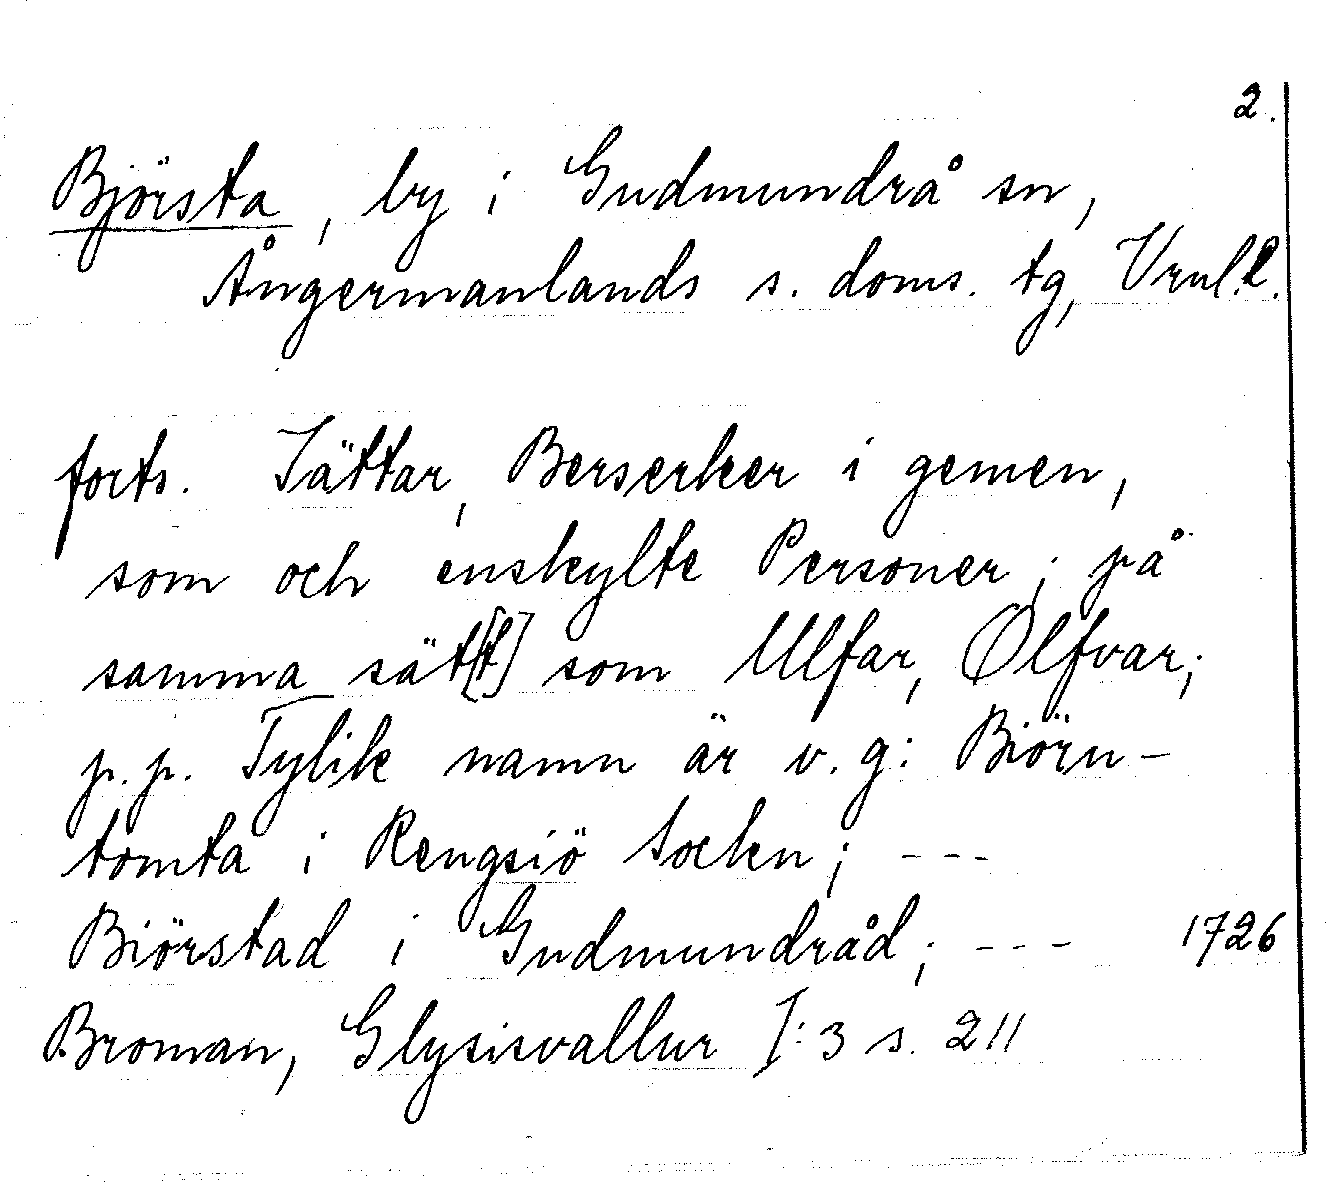 2.
Björsta, by i Gudmundrå sn,
Ångermanlands s. doms. tg, Vrnl.l.
forts. Jättar, Berserker i gemen,
som och enskylte Personer; på
samma sät[t] som Ulfar, Ølfvar;
p.p. Tylik namn är v.g: Biörn-
tomta i Rengsiö Sockn; ---
Biörstad i Gudmundråd; --- 1726
Broman, Glysisvallur I:3 s. 211